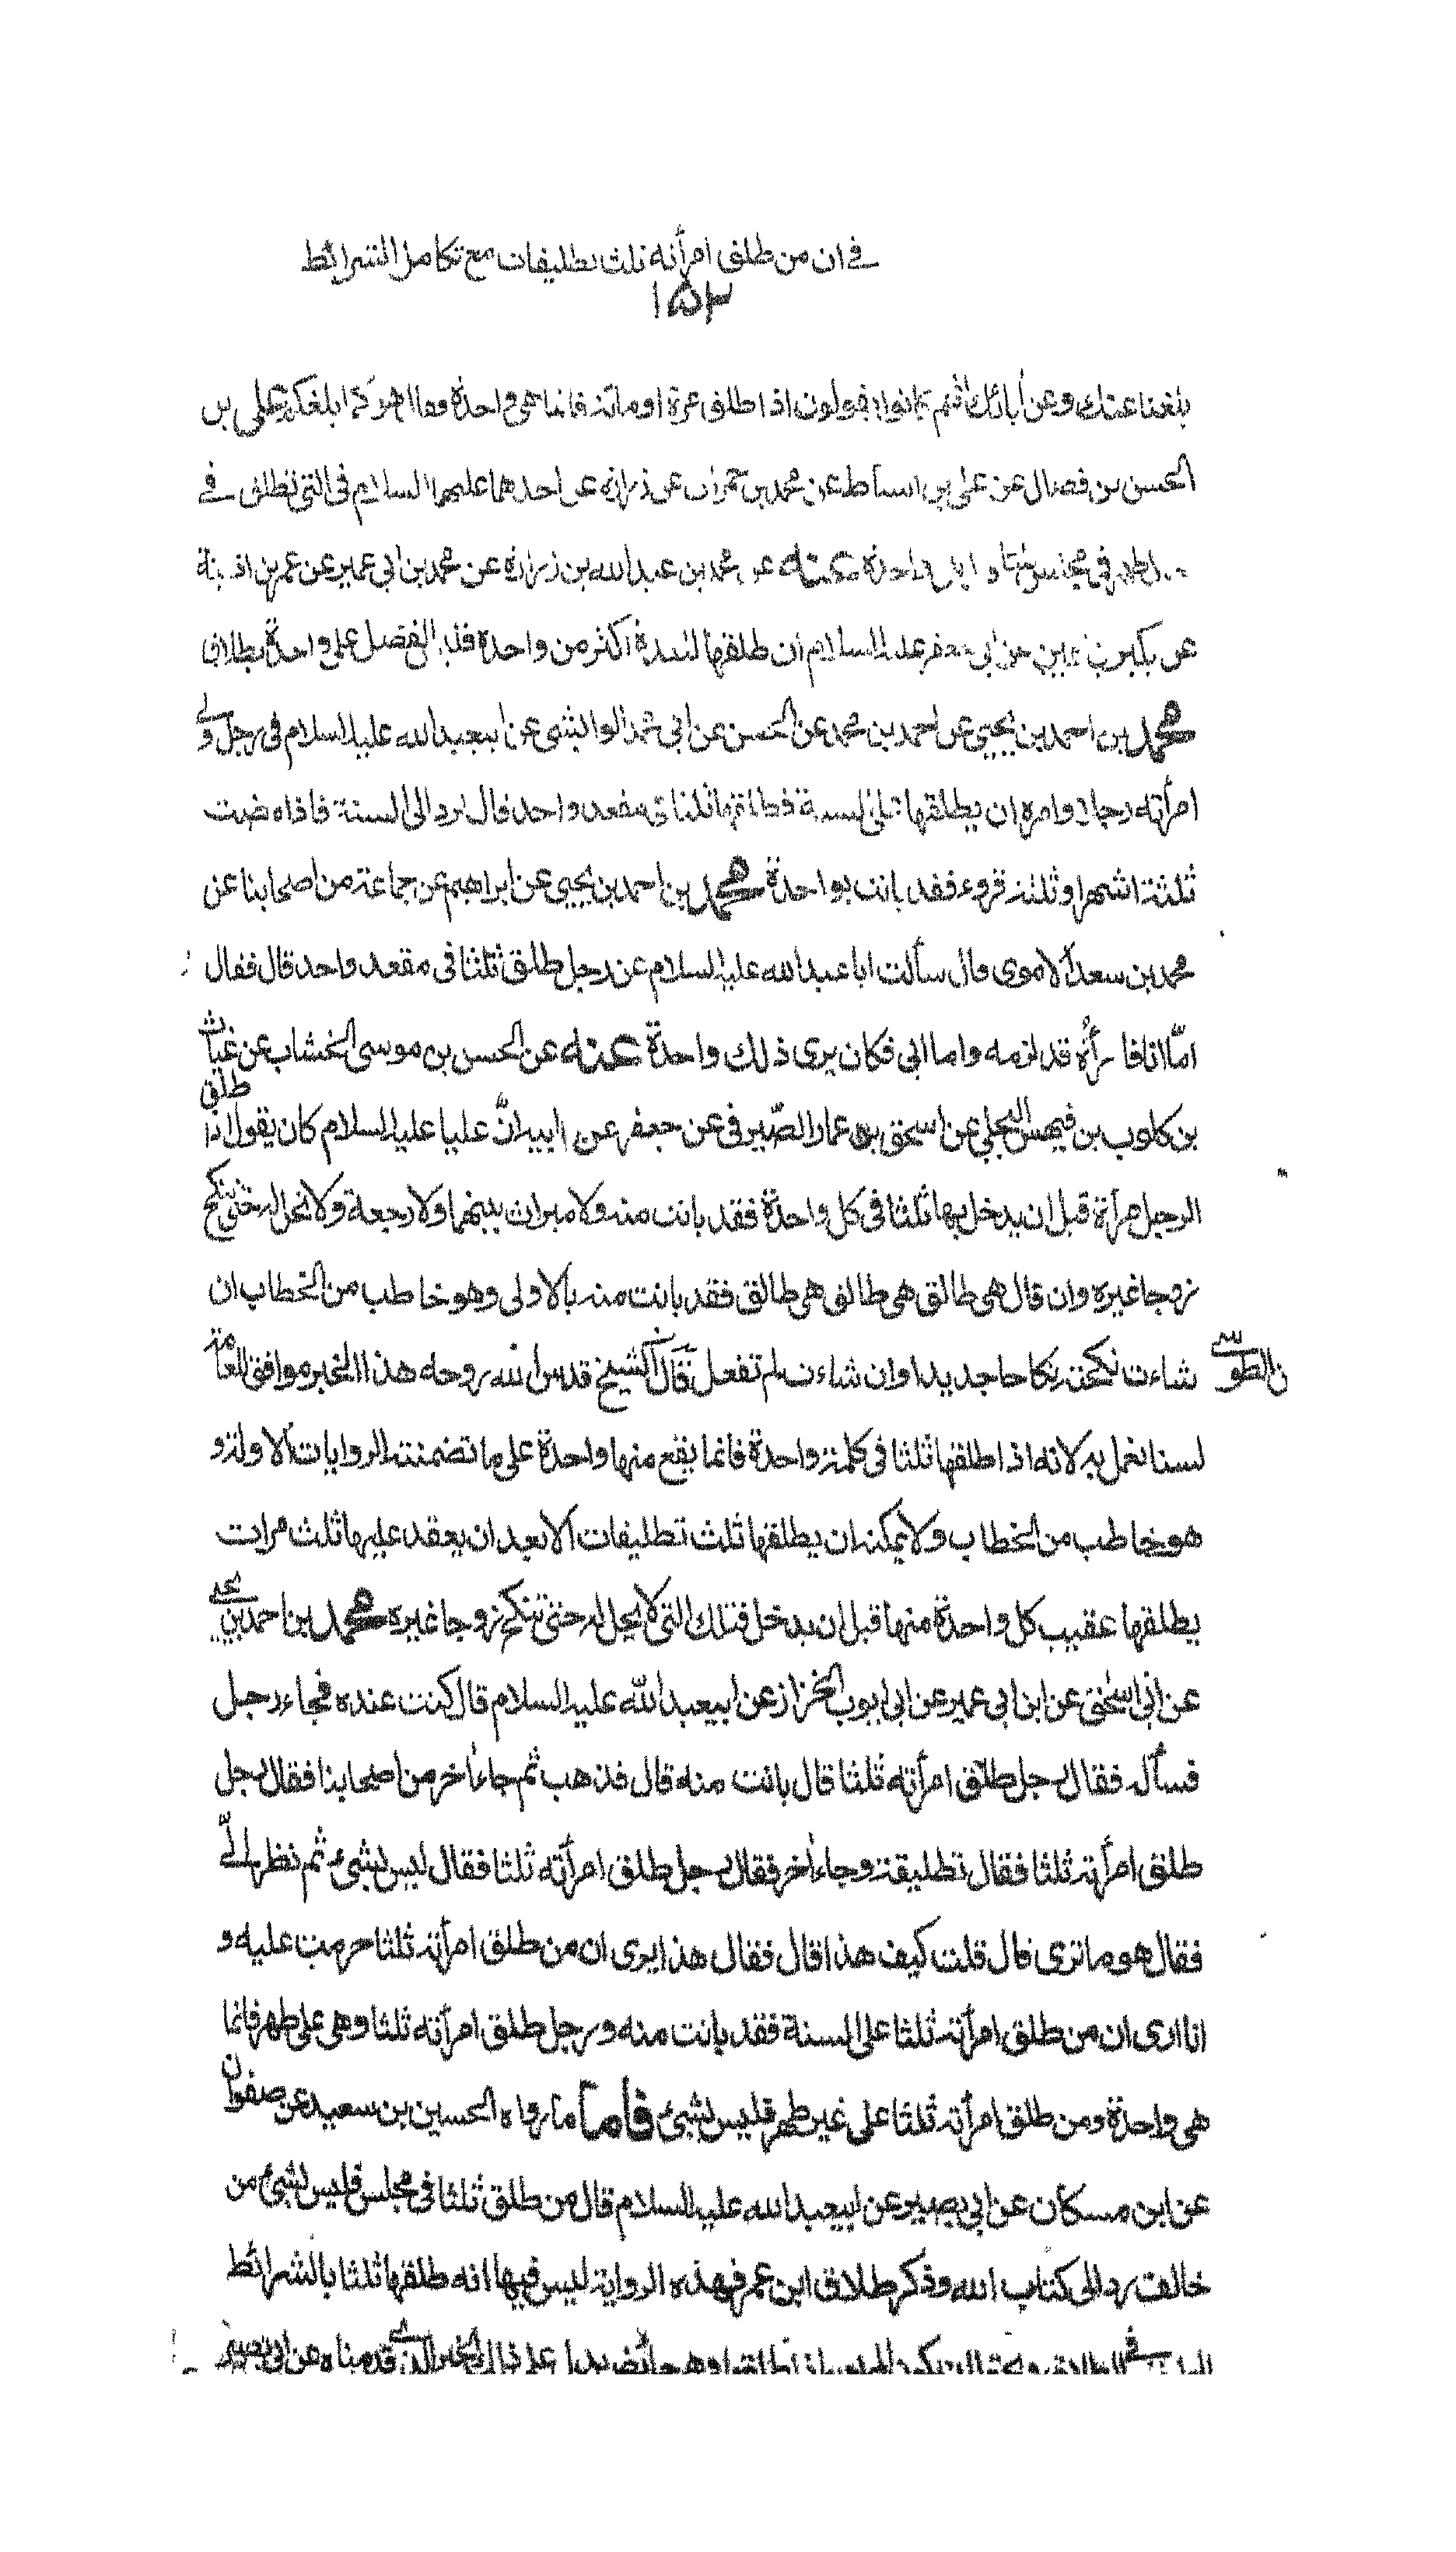 في ان من طلق امرأته ثلث تطليقات مع تكامل الشرائط
١٥٣
بلغنا عنك وعن أبائك انهم كانوا يقولون اذا طلق مرة او مائة فانما هي واحدة فقال هو كما بلغكم علي بن
الحسن بن فضال عن علي بن اسباط عن محمد بن حمران عن زرارة عن احدهما عليهما السلام في التي تطلق في
في مجلس واحدة عنه عن محمد بن عبد الله بن زرارة عن محمد بن ابي عمير عن عمر بن اذينة
عن بكير بن اعين عن ابي جعفر عليه السلام ان طلقها للعدة اكثر من واحدة فليس الفضل على واحدة بطلاق
محمد بن احمد بن يحيى عن احمد بن محمد عن الحسن عن ابي محمد الوابشي عن ابيعبد الله عليه السلام في رجل ولى
امرأته رجلا وامره ان يطلقها على السنة فطلقها ثلثا في مقعد واحد قال يرد الى السنة فاذا مضت
ثلثة اشهر او ثلثة قروء فقد بانت بواحدة محمد بن احمد بن يحيى عن ابراهيم عن جماعة من اصحابنا عن
محمد بن سعد الاموي قال سألت ابا عبد الله عليه السلام عن رجل طلق ثلثا في مقعد واحد قال فقال
امّا انا فا رأه قد لزمه واما ابي فكان يرى ذلك واحدة عنه عن الحسن بن موسى الخشاب عن غياث
بن كلوب بن فيهس البجلي عن اسحق بن عمار الصّيرفي عن جعفر عن ابيه انّ عليا عليه السلام كان يقول اذا طلق
الرجل امرأة قبل ان يدخل بها ثلثا في كل واحدة فقد بانت منه ولا ميراث بينهما ولا رجعة ولا تحل له حتى تنكح
زوجا غيره وان قال هي طالق هي طالق هي طالق فقد بانت منه بالاولى وهو خاطب من الخطاب ان
شاءت نكحته نكاحا جديدا وان شاءت لم تفعل قال الشيخ قدس الله روحه هذا الخبر موافق للعامة
ن الطوسي
لسنا نعمل به لانه اذا طلقها ثلثا في كلمة واحدة فانما يقع منها واحدة على ما تضمنته الروايات الاولة و
هو خاطب من الخطاب ولا يمكنه ان يطلقها ثلث تطليقات الا بعد ان يعقد عليها ثلث مرات
يطلقها عقيب كل واحدة منها قبل ان يدخل فتلك التي لا يحل له حتى تنكح زوجا غيره محمد بن احمد بن يحيى
عن ابي اسحق عن ابن ابي عمير عن ابي ايوب الخزاز عن ابيعبد الله عليه السلام قال كنت عنده فجاء رجل
فسأله فقال رجل طلق امرأته ثلثا قال بانت منه قال فذهب ثم جاء اخر من اصحابنا فقال رجل
طلق امرأته ثلثا فقال تطليقة وجاء اخر فقال رجل طلق امرأته ثلثا فقال ليس بشئ ثم نظر الىّ
فقال هو ما ترى قال قلت كيف هذا قال فقال هذا يرى ان من طلق امرأته ثلثا حرمت عليه و
انا ارى ان من طلق امرأته ثلثا على السنة فقد بانت منه ورجل طلق امرأته ثلثا وهي على طهر فانما
هي واحدة ومن طلق امرأته ثلثا على غير طهر فليس بشئ فأما ما رواه الحسين بن سعيد عن صفوان
عن ابن مسكان عن ابي بصير عن ابيعبد الله عليه السلام قال من طلق ثلثا في مجلس فليس بشئ من
خالف رد الى كتاب الله وذكر طلاق ابن عمر فهذه الرواية ليس فيها انه طلقها ثلثا بالشرائط